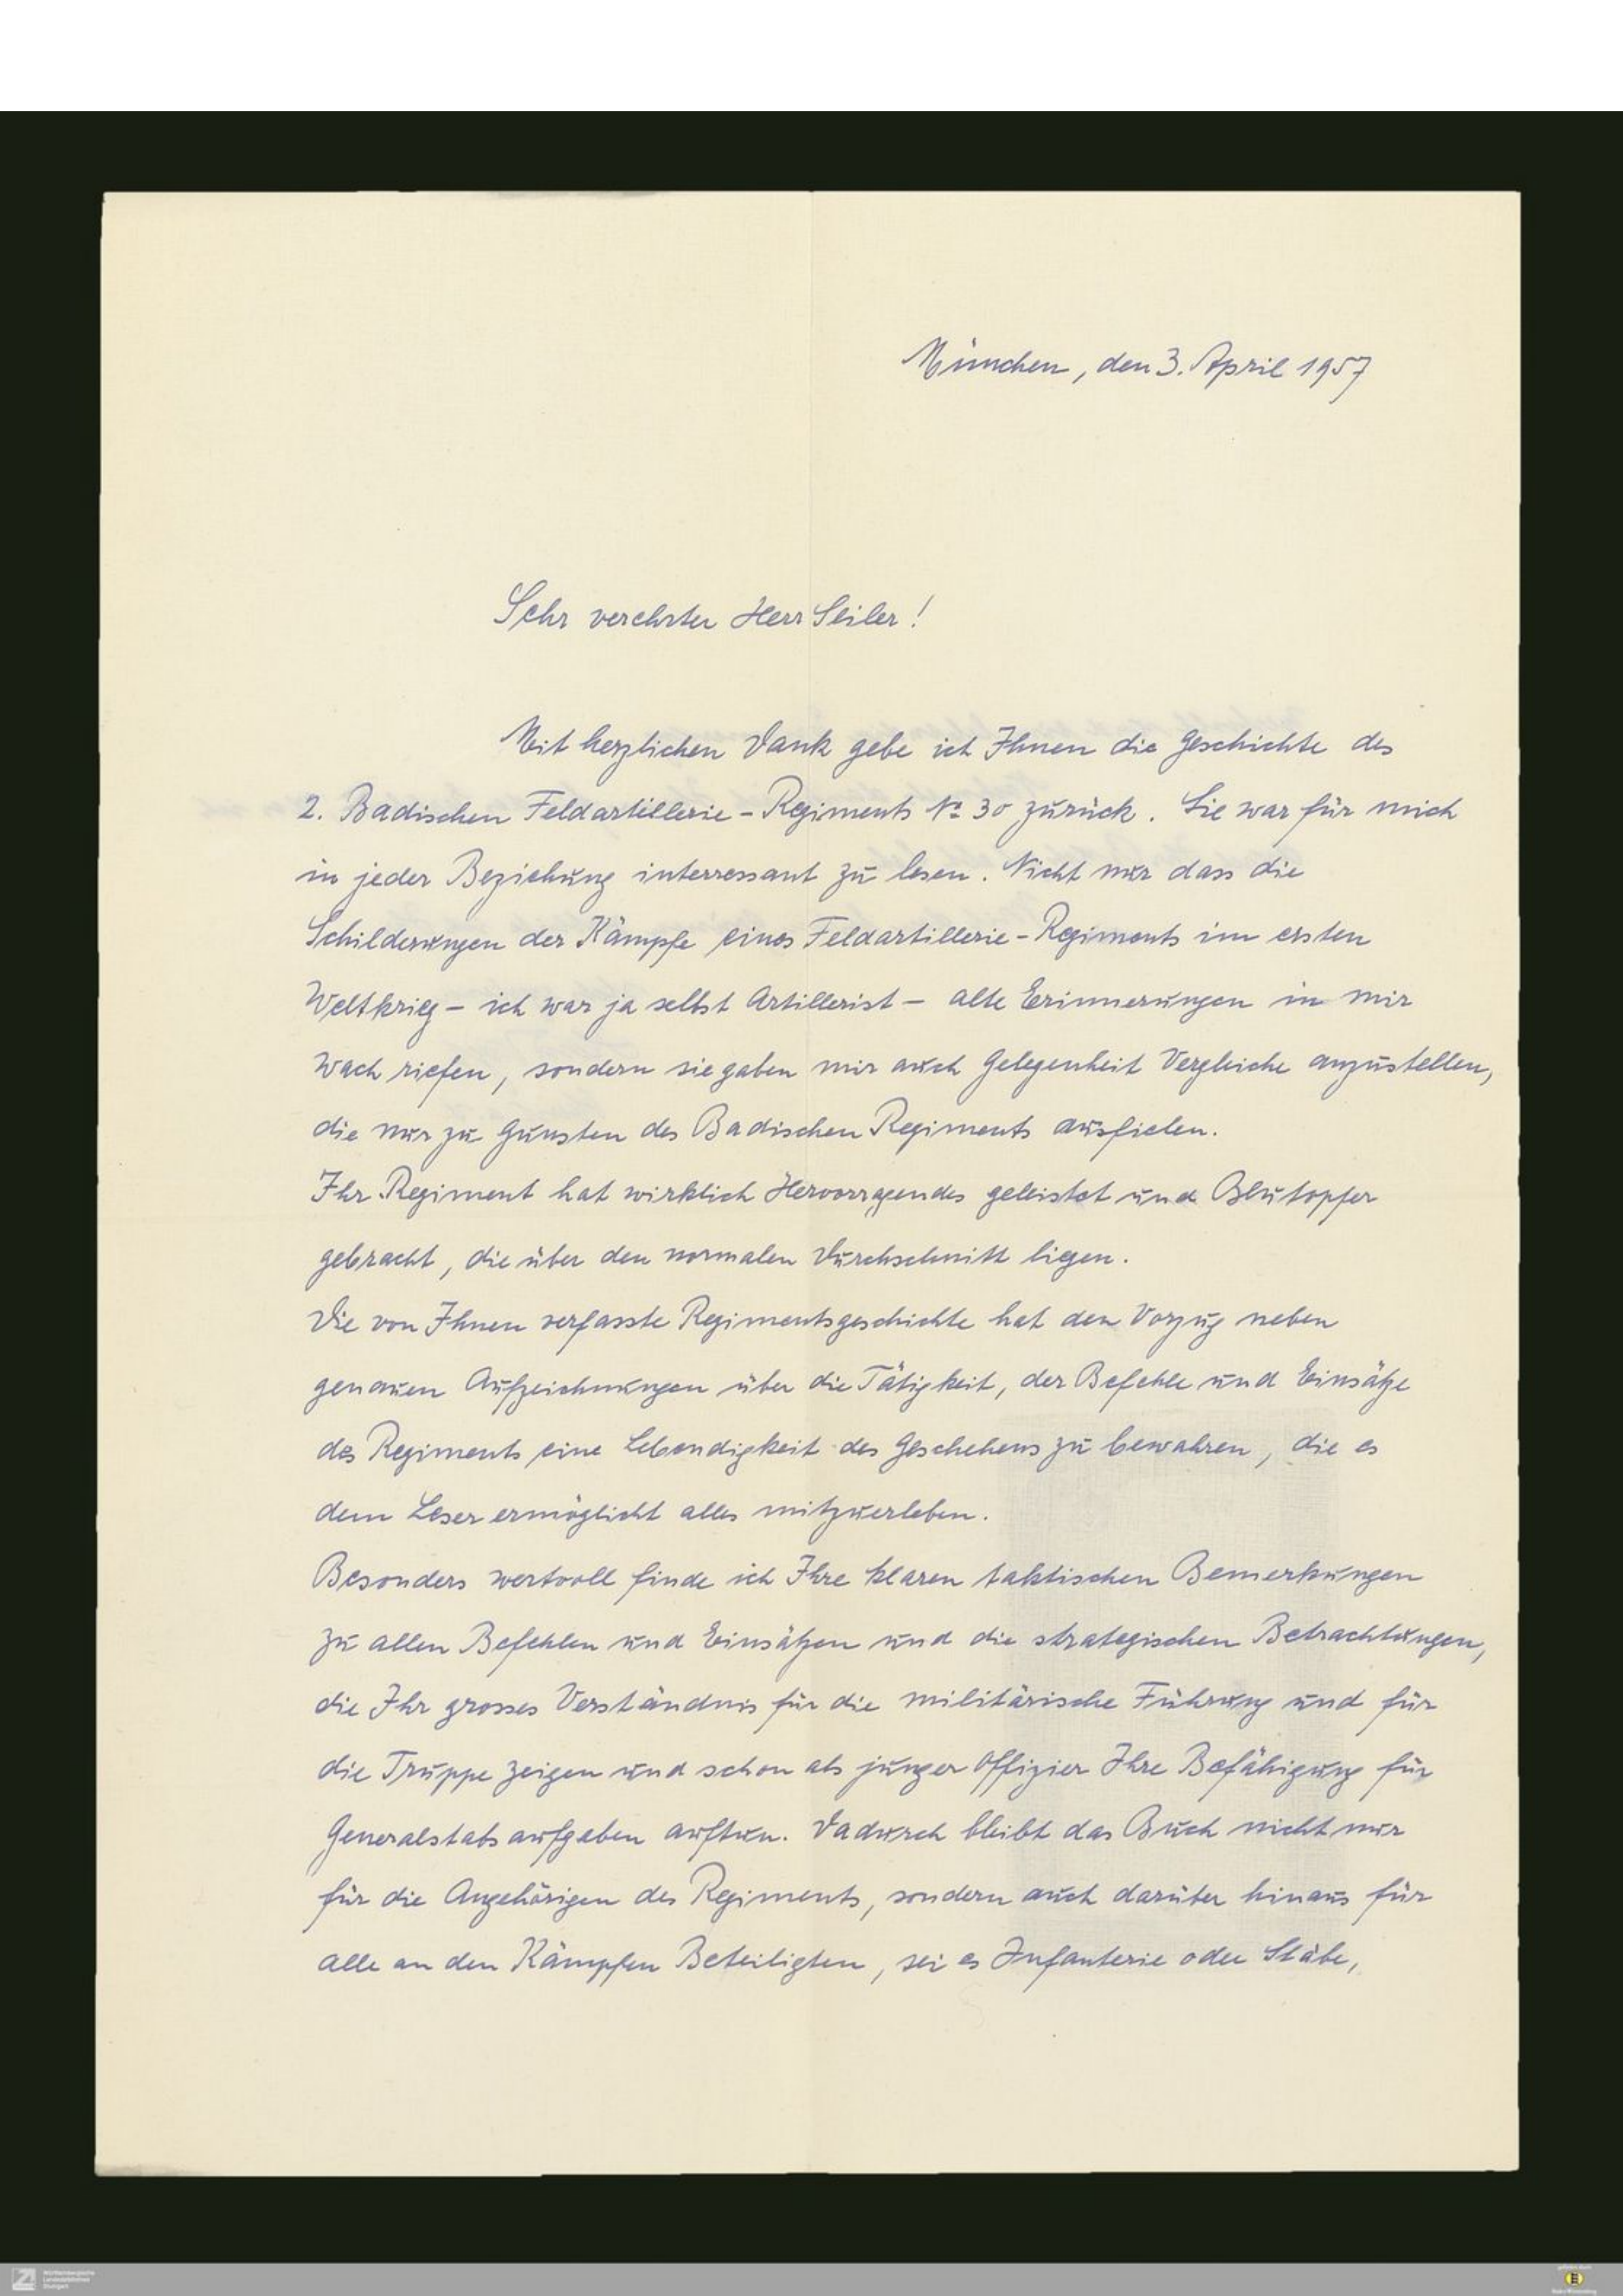 München, den 3. April 1957
Sehr verehrter Herr Seiler!
Mit herzlichen Dank gebe ich Ihnen die Geschichte des
2. Badischen Feldartillerie-Regiments No 30 zurück. Sie war für mich
in jeder Beziehung interressant zu lesen. Nicht nur dass die
Schilderungen der Kämpfe eines Feldartillerie-Regiments im ersten
Weltkrieg - ich war ja selbst Artillerist - alte Erinnerungen in mir
wach riefen, sondern sie gaben mir auch Gelegenheit Vergleiche anzustellen,
die nur zu Gunsten des Badischen Regiments ausfielen.
Ihr Regiment hat wirklich Hervorragendes geleistet und Blutopfer
gebracht, die über den normalen Durchschnitt liegen.
Die von Ihnen verfasste Regimentsgeschichte hat den Vorzug neben
genauen Aufzeichnungen über die Tätigkeit, der Befehle und Einsätze
des Regiments eine Lebendigkeit des Geschehens zu bewahren, die es
dem Leser ermöglicht alles mitzuerleben.
Besonders wertvoll finde ich Ihre klaren taktischen Bemerkungen
zu allen Befehlen und Einsätzen und die strategischen Betrachtungen,
die Ihr grosses Verständnis für die militärische Führung und für
die Truppe zeigen und schon als junger Offizier Ihre Befähigung für
Generalstabsaufgaben auftun. Dadurch bleibt das Buch nicht nur
für die Angehörigen des Regiments, sondern auch darüber hinaus für
alle an den Kämpfen Beteiligten, sei es Infanterie oder Stäbe,
Württembergische
Landesbibliothek
Stuttgart